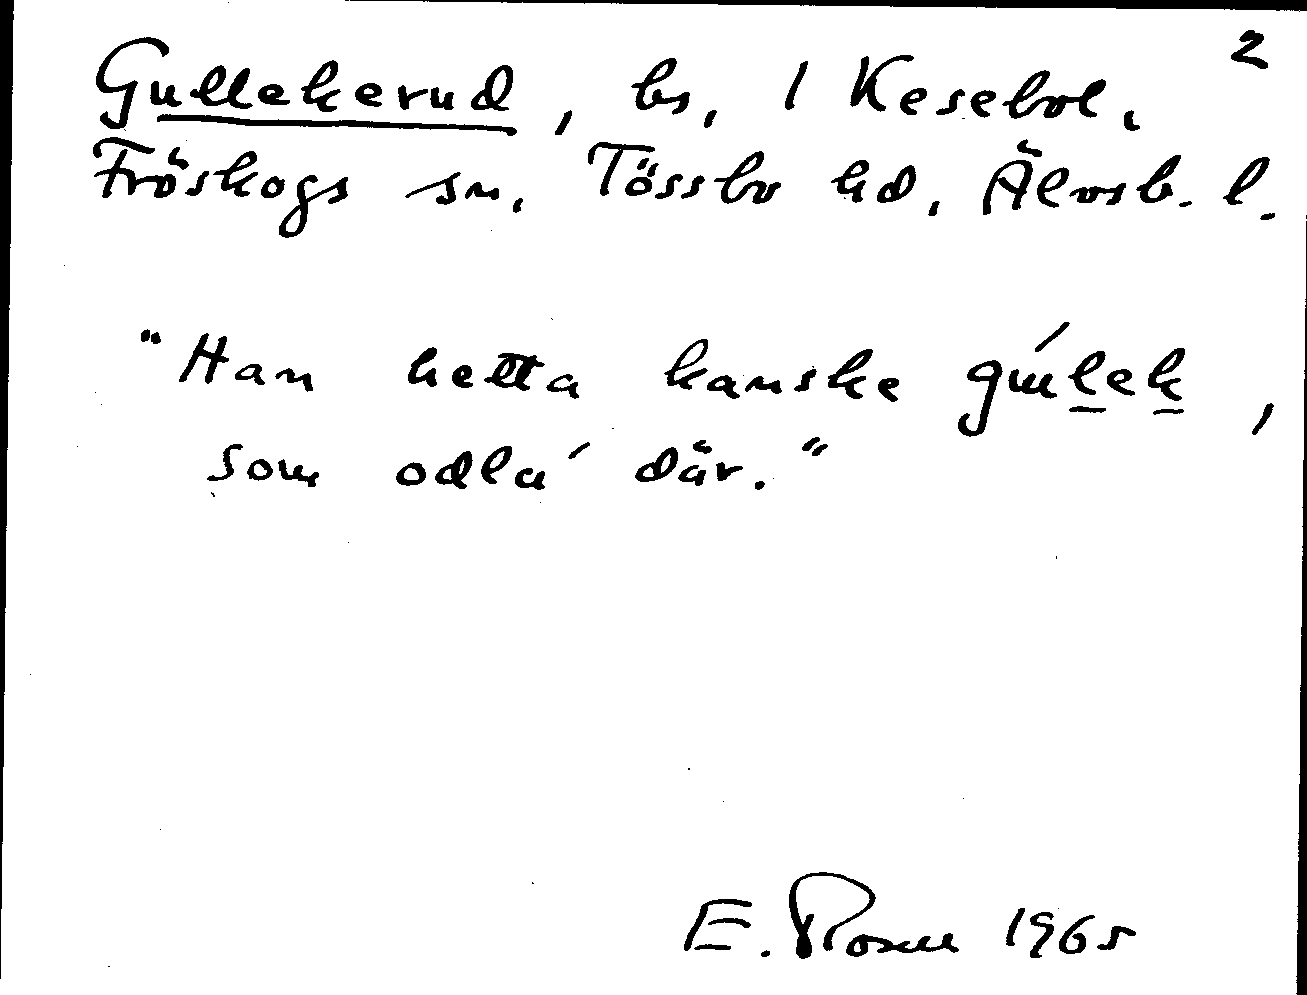 2
Gullekerud, bs, 1 Kesebol.
Fröskogs sn, Tössbo hd, Älvsb. l.
"Han hetta kanske gúlek,
som odla' där."
E. Rosen 1965